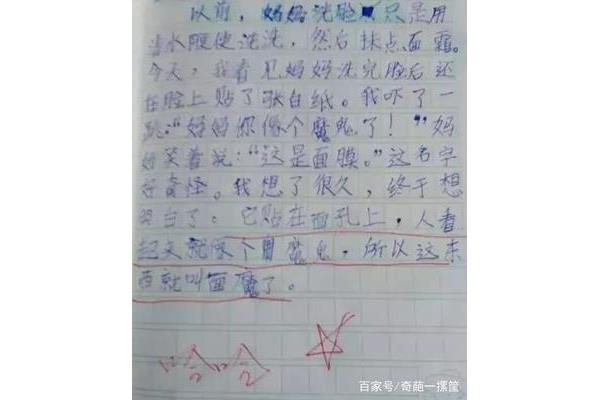 以前，妈妈洗脸只是用
清水随便洗洗，然后抹点面霜。
今天，我看见妈妈洗完脸后还
在脸上贴了张白纸。我吓了一
跳:“妈妈你像个魔鬼了！”妈
妈笑着说：“这是面膜。”这名字
好奇怪。我想了很久，终于想
明白了。它贴在面孔上，人看
起来就像个魔鬼，所以这东
西就叫面魔了。
哈哈
百家号/奇葩一摞筐